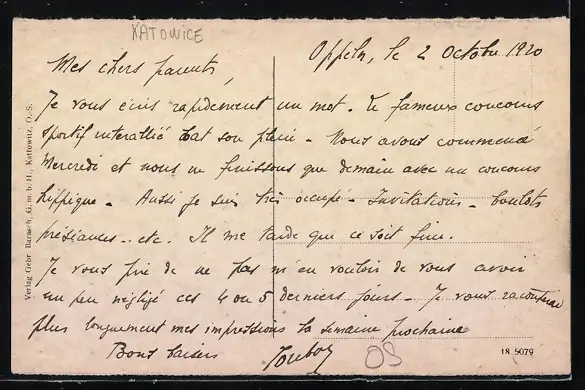 KATOWICE
Oppeln, le 2 Octobre 1920
Mes chers parents,
Je vous écris rapidement un mot. Le fameux concours
sportif interallié bat son plein - Nous avons commencé
Mercredi et nous ne finissons que demain avec un concours
hippique - Aussi je suis très occupé - Invitations - boulots
préséances - etc. Il me tarde que ce soit fini.
Je vous prie de ne pas m'en vouloir de vous avoir
un peu négligé ces 4 ou 5 derniers jours - Je vous raconterai
plus longuement mes impressions la semaine prochaine
Bons baisers
OS
18 5079
Verlag Gebr. Barasch, G. m. b. H., Kattowitz, O.-S.